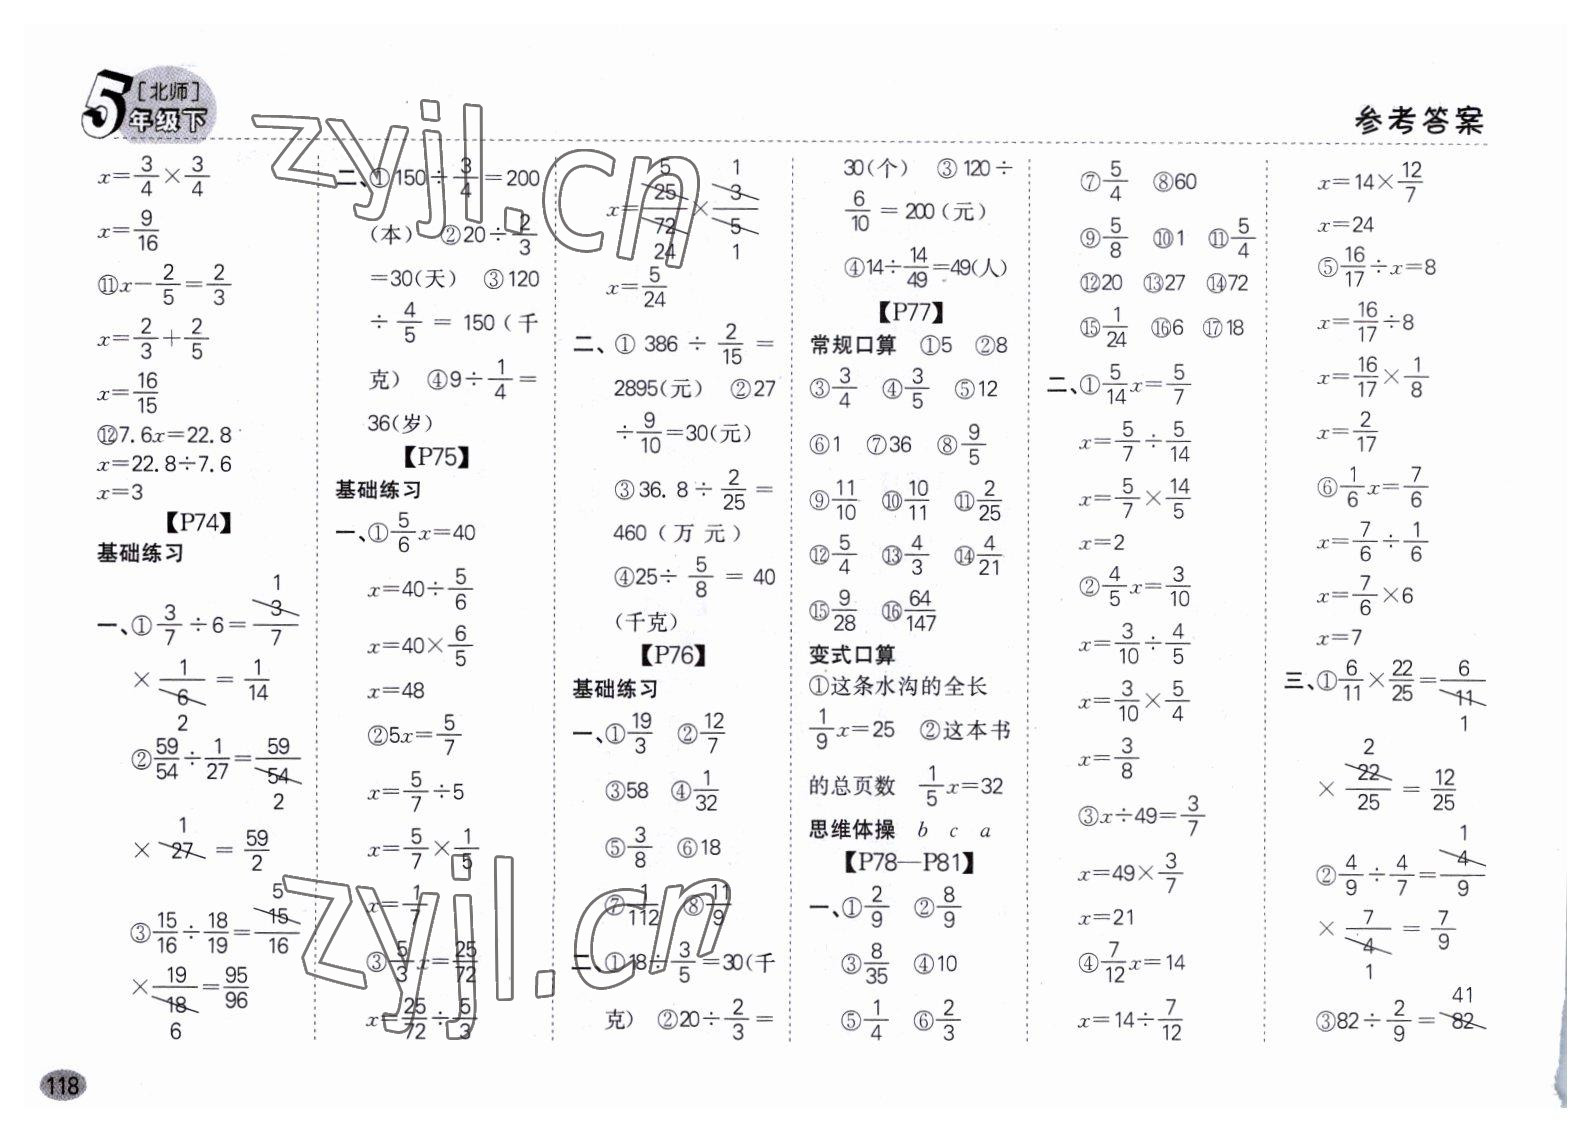 5年级下 [北师]
参考答案
x=3/4×3/4
x=9/16
⑪x−2/5=2/3
x=2/3+2/5
x=16/15
⑫7.6x=22.8
x=22.8÷7.6
x=3
【P74】
基础练习
一、①3/7÷6=3/7 (3→1)
×1/6=1/14 (6→2)
②59/54÷1/27=59/54 (54→2)
×27=59/2 (27→1)
③15/16÷18/19=15/16 (15→5)
×19/18=95/96 (18→6)
二、①150÷3/4=200
(本) ②20÷2/3
=30(天) ③120
÷4/5=150(千
克) ④9÷1/4=
36(岁)
【P75】
基础练习
一、①5/6x=40
x=40÷5/6
x=40×6/5
x=48
②5x=5/7
x=5/7÷5
x=5/7×1/5
x=1/7
③5/3x=25/72
x=25/72÷5/3
x=25/72×3/5 (25→5, 72→24, 3→1, 5→1)
x=5/24
二、①386÷2/15=
2895(元) ②27
÷9/10=30(元)
③36.8÷2/25=
460(万元)
④25÷5/8=40
(千克)
【P76】
基础练习
一、①19/3 ②12/7
③58 ④1/32
⑤3/8 ⑥18
⑦1/112 ⑧11/9
二、①18÷3/5=30(千
克) ②20÷2/3=
30(个) ③120÷
6/10=200(元)
④14÷14/49=49(人)
【P77】
常规口算 ①5 ②8
③3/4 ④3/5 ⑤12
⑥1 ⑦36 ⑧9/5
⑨11/10 ⑩10/11 ⑪2/25
⑫5/4 ⑬4/3 ⑭4/21
⑮9/28 ⑯64/147
变式口算
①这条水沟的全长
1/9x=25 ②这本书
的总页数 1/5x=32
思维体操 b c a
【P78—P81】
一、①2/9 ②8/9
③8/35 ④10
⑤1/4 ⑥2/3
⑦5/4 ⑧60
⑨5/8 ⑩1 ⑪5/4
⑫20 ⑬27 ⑭72
⑮1/24 ⑯6 ⑰18
二、①5/14x=5/7
x=5/7÷5/14
x=5/7×14/5
x=2
②4/5x=3/10
x=3/10÷4/5
x=3/10×5/4
x=3/8
③x÷49=3/7
x=49×3/7
x=21
④7/12x=14
x=14÷7/12
x=14×12/7
x=24
⑤16/17÷x=8
x=16/17÷8
x=16/17×1/8
x=2/17
⑥1/6x=7/6
x=7/6÷1/6
x=7/6×6
x=7
三、①6/11×22/25=6/11 (11→1)
×22/25=12/25 (22→2)
②4/9÷4/7=4/9 (4→1)
×7/4=7/9 (4→1)
③82÷2/9=82 (82→41)
118
zyjl.cn
zyjl.cn